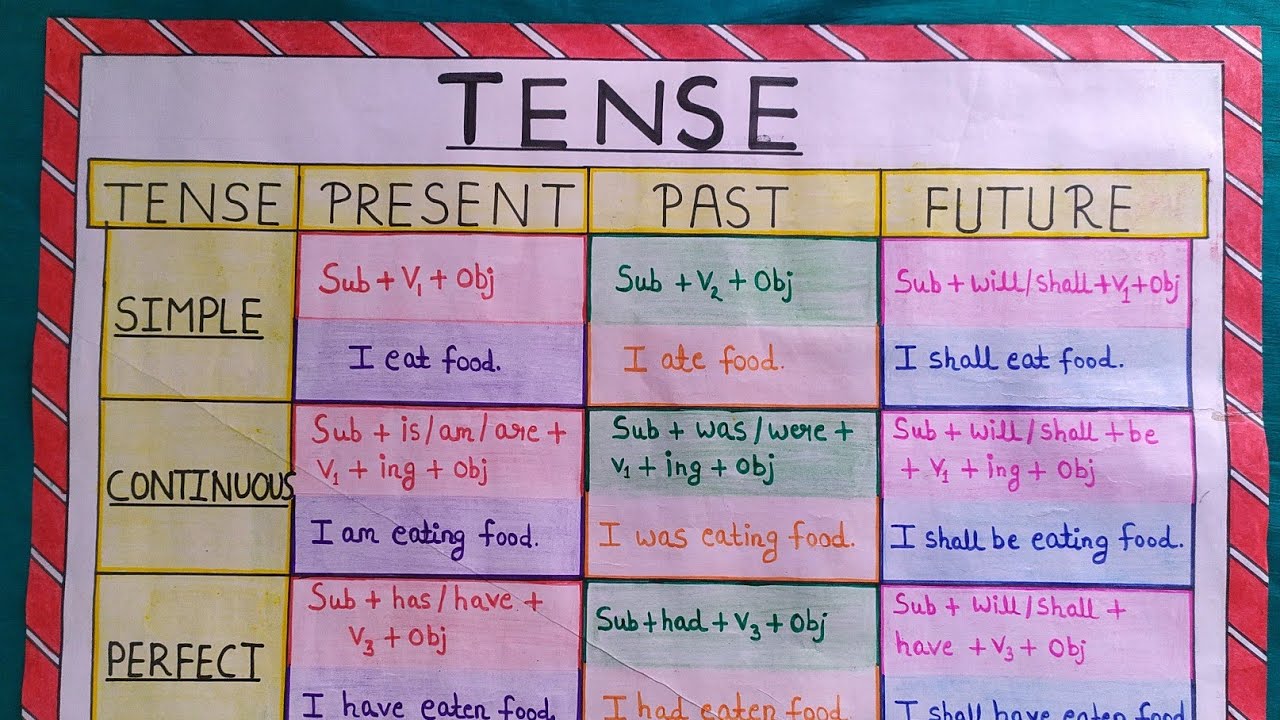 TENSE
TENSE PRESENT PAST FUTURE
SIMPLE
Sub + V₁ + Obj
I eat food.
Sub + V₂ + Obj
I ate food.
Sub + will/shall + V₁ + Obj
I shall eat food.
CONTINUOUS
Sub + is/am/are +
V₁ + ing + Obj
I am eating food.
Sub + was/were +
V₁ + ing + Obj
I was eating food.
Sub + will/shall + be
+ V₁ + ing + Obj
I shall be eating food.
PERFECT
Sub + has/have +
V₃ + Obj
I have eaten food.
Sub + had + V₃ + Obj
I had eaten food.
Sub + will/shall +
have + V₃ + Obj
I shall have eaten food